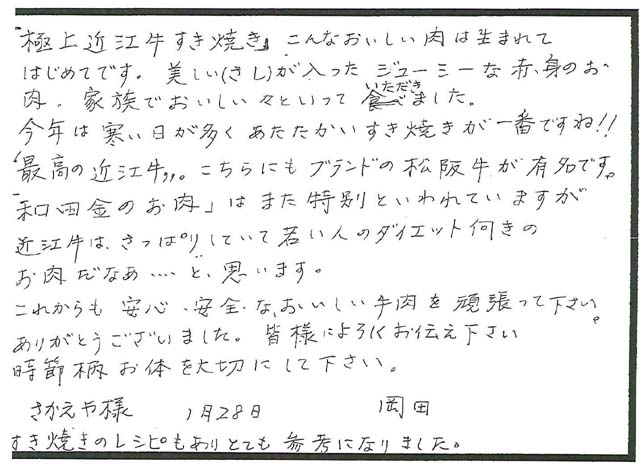 「極上近江牛すき焼き」こんなおいしい肉は生まれて
はじめてです。美しい(さし)が入ったジューシーな赤身のお
肉。家族でおいしい々といって食べました。
いただき
今年は寒い日が多くあたたかいすき焼きが一番ですね!!
「最高の近江牛」。こちらにもブランドの松阪牛が有名です。
「和田金のお肉」はまた特別といわれていますが
近江牛は、さっぱりしていて若い人のダイエット向きの
お肉だなあ……と、思います。
これからも安心、安全、な、おいしい牛肉を頑張って下さい。
ありがとうございました。皆様によろしくお伝え下さい
時節柄お体を大切にして下さい。
さかえや様 1月28日 岡田
すき焼きのレシピもありとても参考になりました。